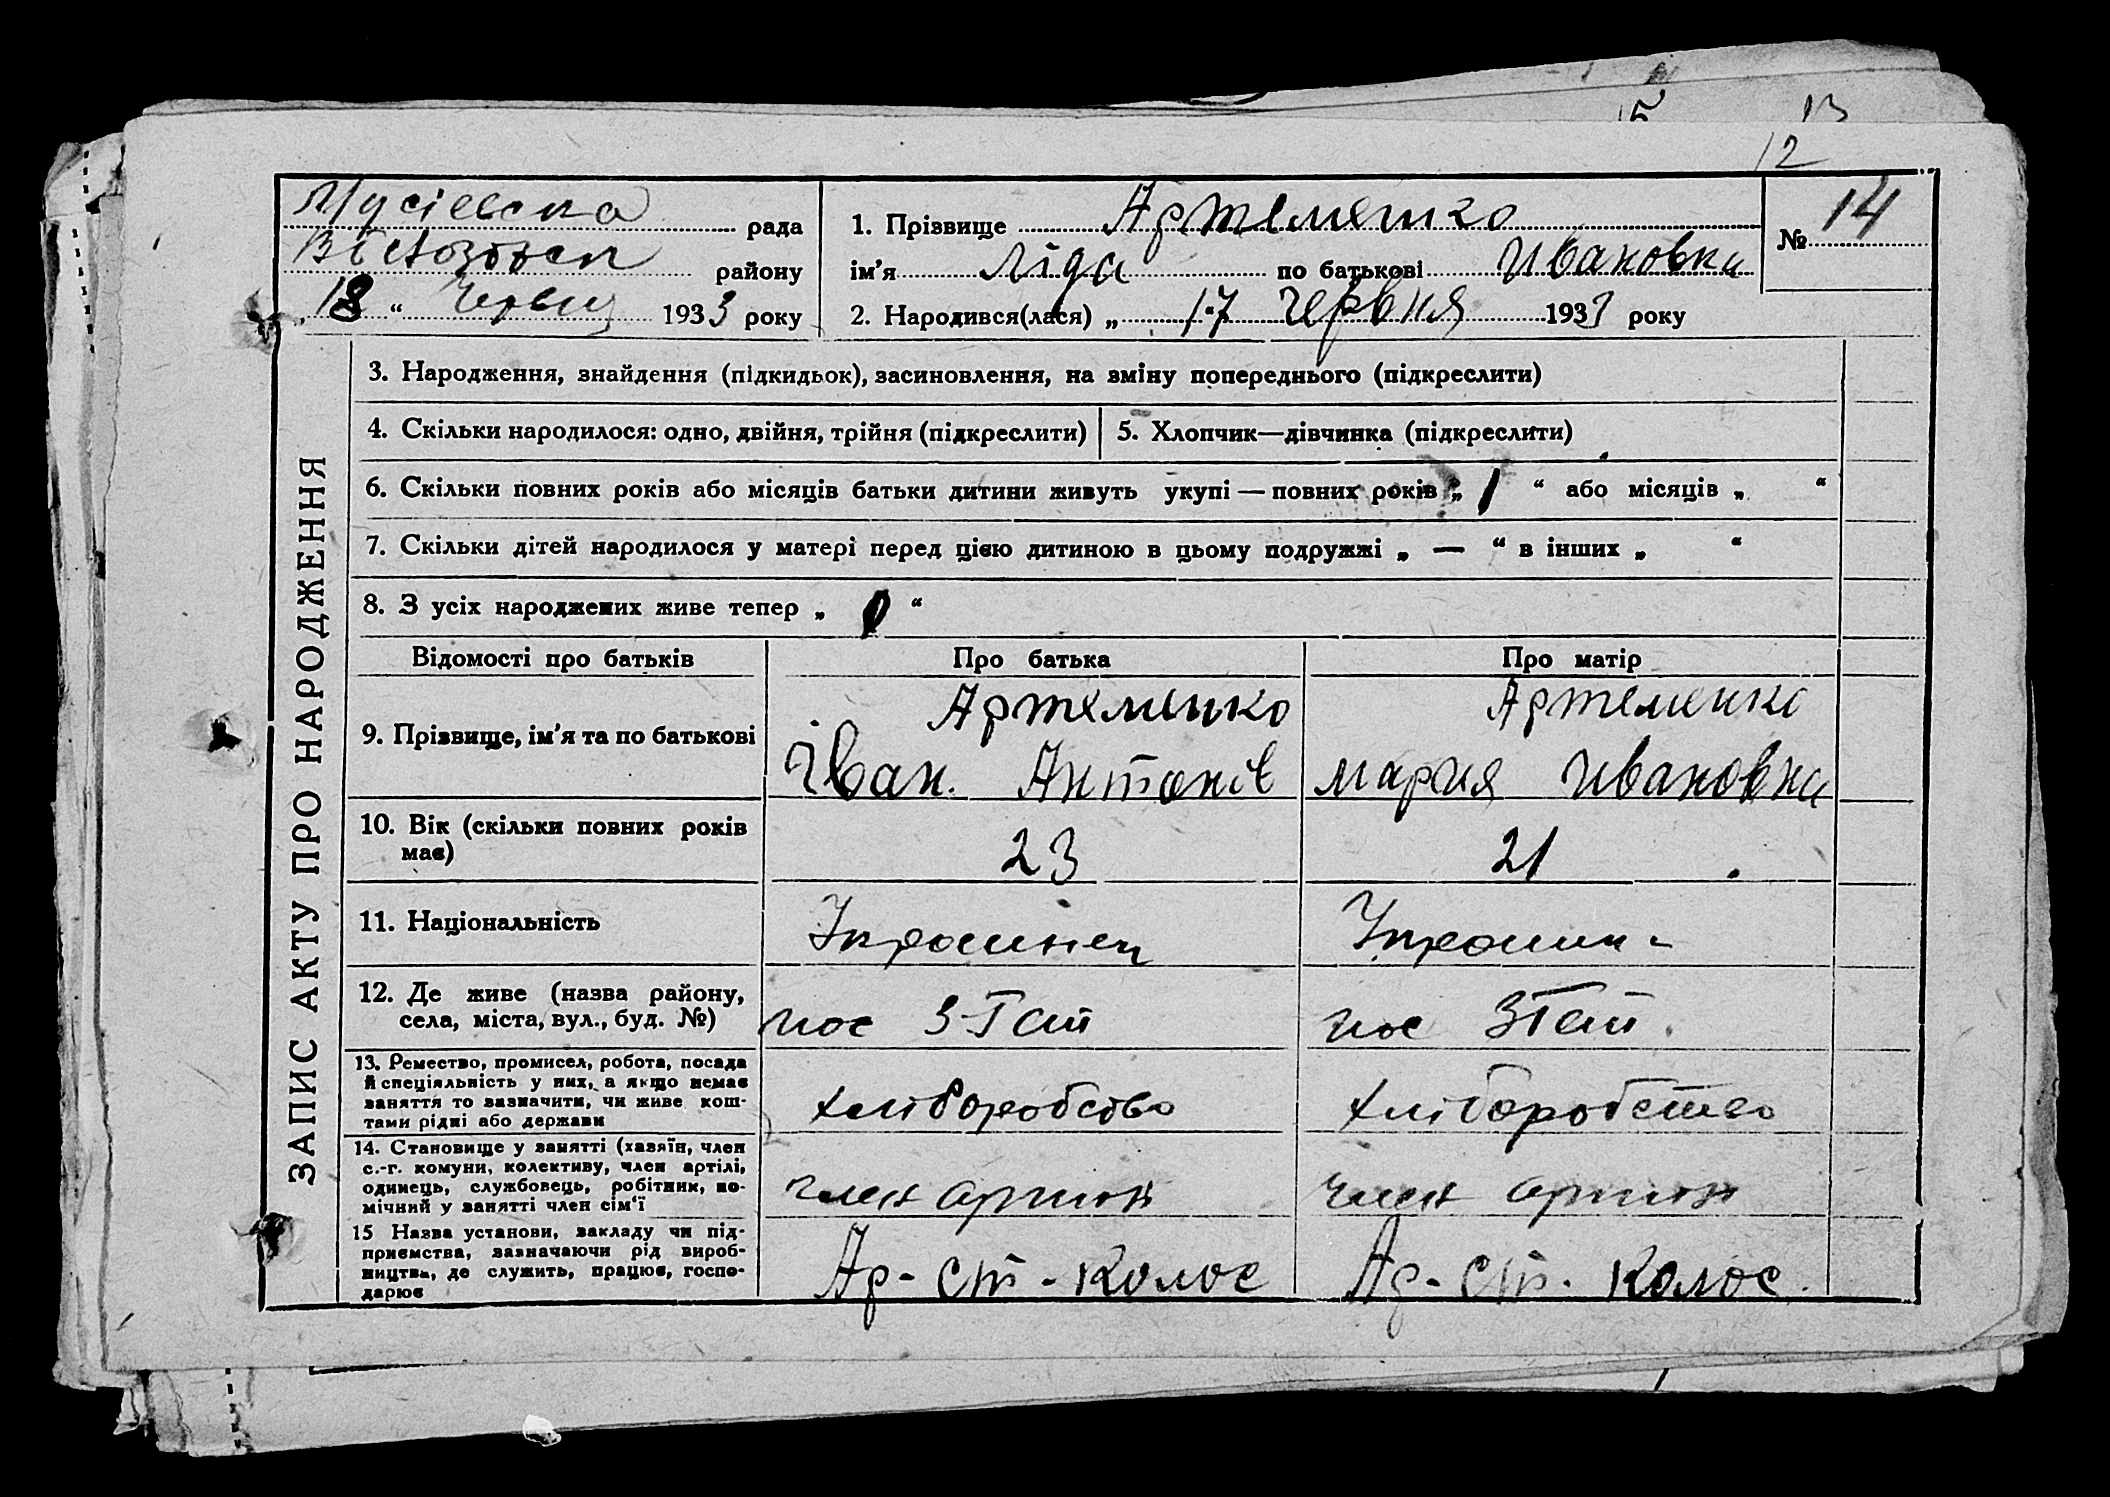 15 13
12
Мусіевска рада
району
18 “ Червня 1933 року
1. Прізвище Артеменко
ім’я Ліда по батькові Ивановна
2. Народився(лася) „ 17 червня 1933 року
№ 14
ЗАПИС АКТУ ПРО НАРОДЖЕННЯ
3. Народження, знайдення (підкидьок), засиновлення, на зміну попереднього (підкреслити)
4. Скільки народилося: одно, двійня, трійня (підкреслити)
5. Хлопчик—дівчинка (підкреслити)
6. Скільки повних років або місяців батьки дитини живуть укупі — повних років „ 1 “ або місяців „ “
7. Скільки дітей народилося у матері перед цією дитиною в цьому подружжі „ — “ в інших „ “
8. З усіх народжених живе тепер „ “
Відомості про батьків
Про батька
Про матір
9. Прізвище, ім’я та по батькові
Артеменко
Іван. Антонів
Артеменко
мария Ивановна
10. Вік (скільки повних років
має)
23
21
11. Національність
Украинец
Украинк
12. Де живе (назва району,
села, міста, вул., буд. №)
пос
пос
13. Ремество, промисел, робота, посада
й спеціяльність у них, а якщо немає
заняття то зазначити, чи живе кош-
тами рідні або держави
хліборобство
хліборобство
14. Становище у занятті (хазяїн, член
с.-г. комуни, колективу, член артілі,
одинець, службовець, робітник, по-
мічний у занятті член сім‘ї
член артили
член артили
15 Назва установи, закладу чи під-
приємства, зазначаючи рід вироб-
ництва, де служить, працює, госпо-
дарює
Ар- ст - колос
Ар- ст. колос.